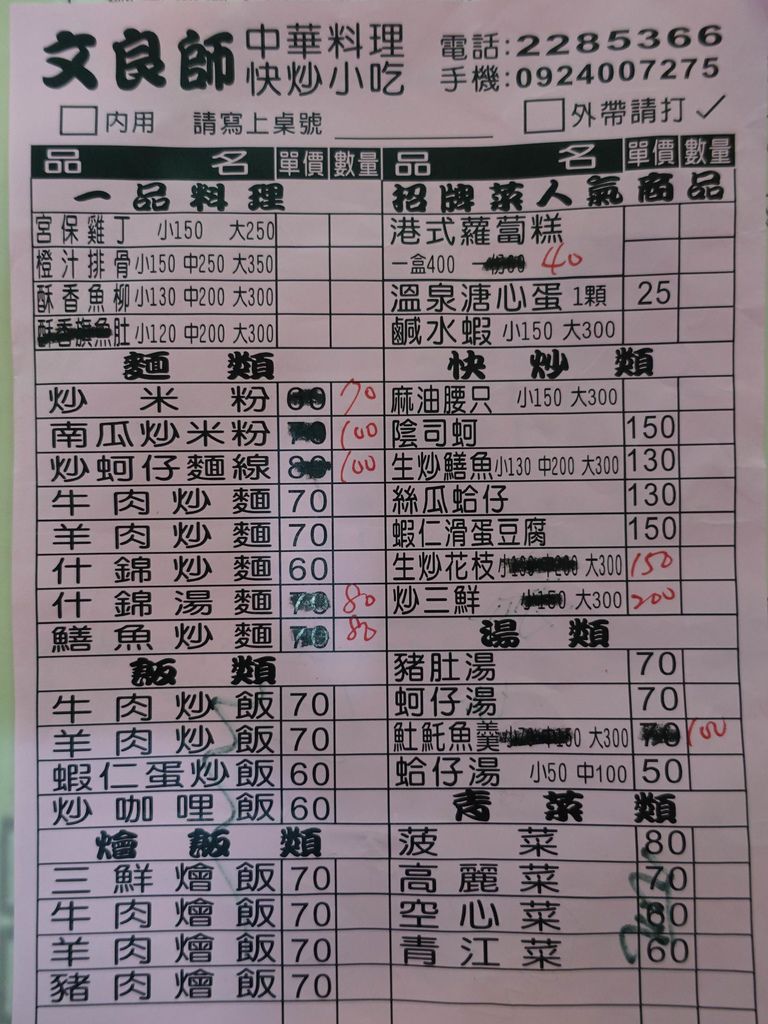 文良師 中華料理 快炒小吃
電話:2285366
手機:0924007275
內用 請寫上桌號 外帶請打✓
品名 單價 數量
一品料理
宮保雞丁 小150 大250
橙汁排骨 小150 中250 大350
酥香魚柳 小130 中200 大300
肚 小120 中200 大300
麵類
炒米粉 70
南瓜炒米粉 100
炒蚵仔麵線 100
牛肉炒麵 70
羊肉炒麵 70
什錦炒麵 60
什錦湯麵 80
鱔魚炒麵 80
飯類
牛肉炒飯 70
羊肉炒飯 70
蝦仁蛋炒飯 60
炒咖哩飯 60
燴飯類
三鮮燴飯 70
牛肉燴飯 70
羊肉燴飯 70
豬肉燴飯 70
品名 單價 數量
招牌菜人氣商品
港式蘿蔔糕
一盒400 40
溫泉溏心蛋 1顆 25
鹹水蝦 小150 大300
快炒類
麻油腰只 小150 大300
陰司蚵 150
生炒鱔魚 小130 中200 大300 130
絲瓜蛤仔 130
蝦仁滑蛋豆腐 150
生炒花枝 大300 150
炒三鮮 大300 200
湯類
豬肚湯 70
蚵仔湯 70
魠魚羹 大300 100
蛤仔湯 小50 中100 50
青菜類
菠菜 80
高麗菜 70
空心菜 60
青江菜 60